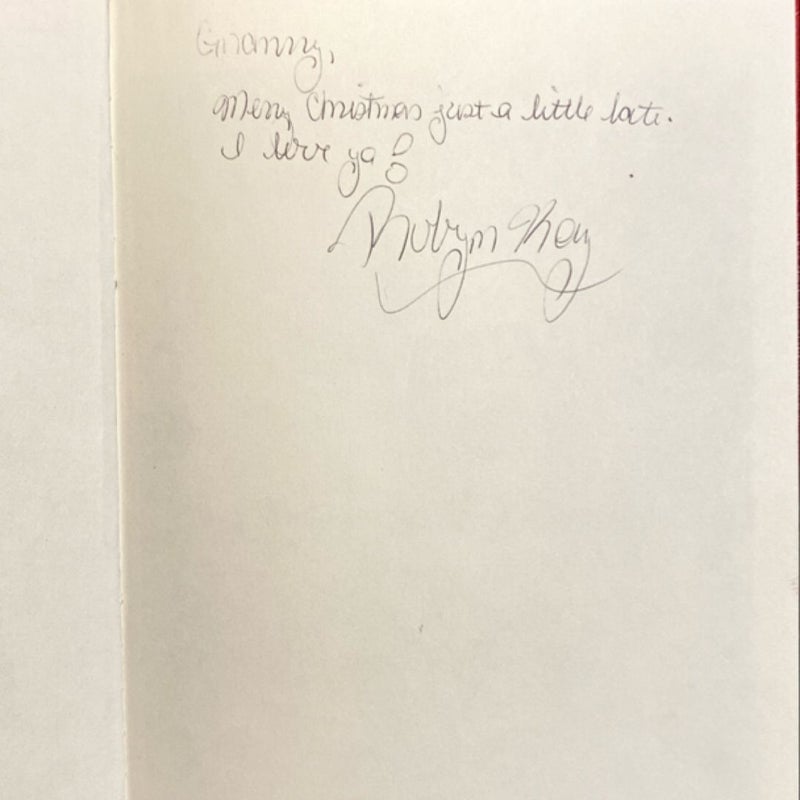 Granny,
Merry Christmas just a little late.
I love ya!
Robyn Kay